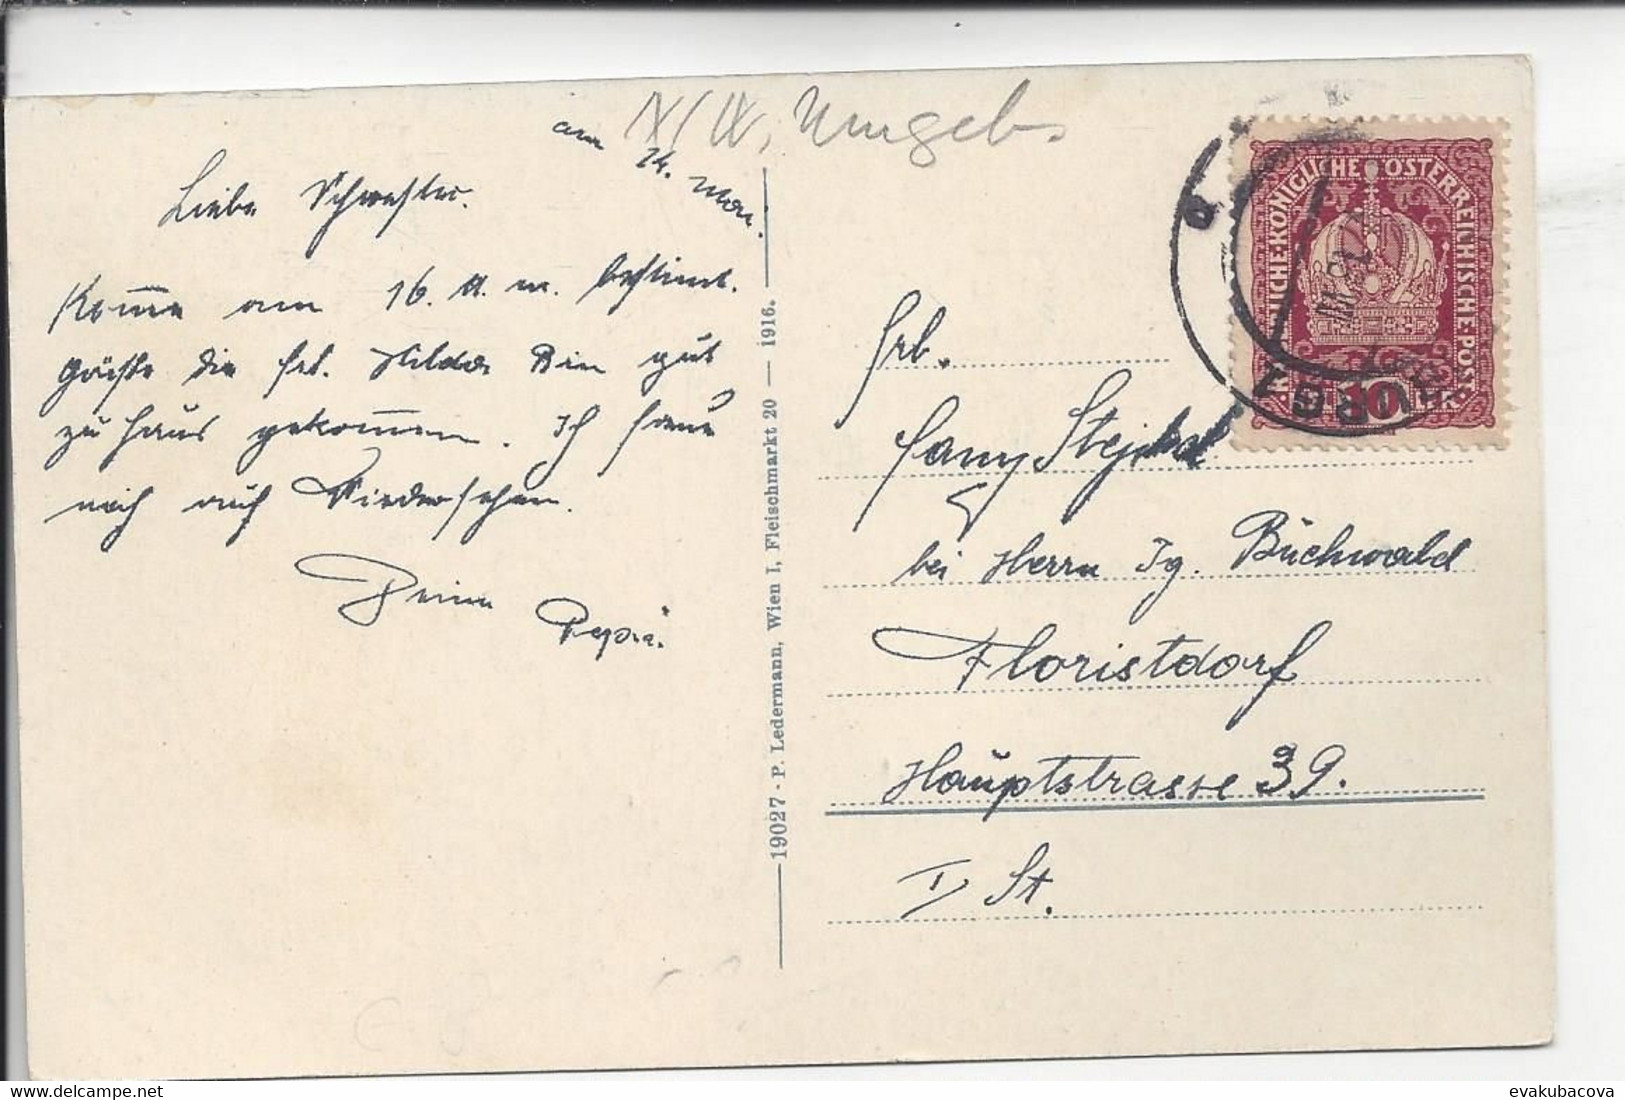 N/W, Umgeb.
am 14. Mai.
Liebe Schwester.
Komme am 16. d. m. bestimt.
Grüße die Frl. Hilda. Bin gut
zu haus gekommen. Ich freue
mich auf Wiedersehen.
Deine
Pepi
19027 - P. Ledermann, Wien I, Fleischmarkt 20 — 1916.
KAISERLICHE·KÖNIGLICHE·ÖSTERREICHISCHE·POST·
10
BURG 1
Frl.
Fany
bei Herrn Ig. Buchwald
Floristdorf
Hauptstrasse 39.
I St.
evakubacova